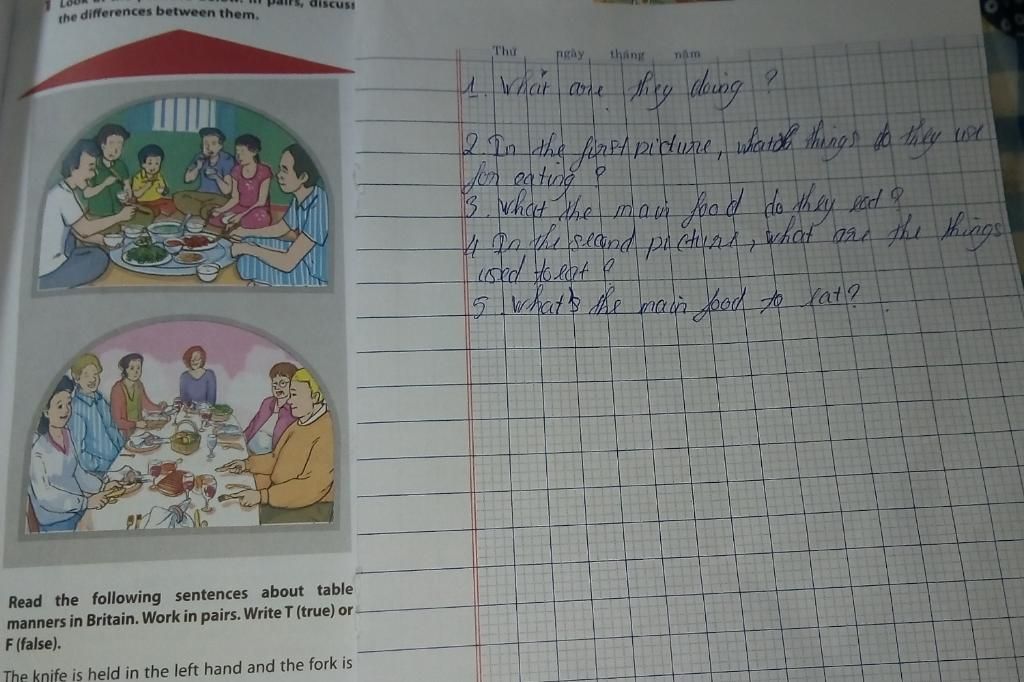 1 Look at the pictures below. In pairs, discuss
the differences between them.
Thứ ngày tháng năm
1. What are they doing ?
2 In the first picture, what things do they use
for eating ?
3. what the main food do they eat ?
4 In the second picture, what are the things
used to eat ?
5 what's the main food to eat ?
Read the following sentences about table
manners in Britain. Work in pairs. Write T (true) or
F (false).
The knife is held in the left hand and the fork is